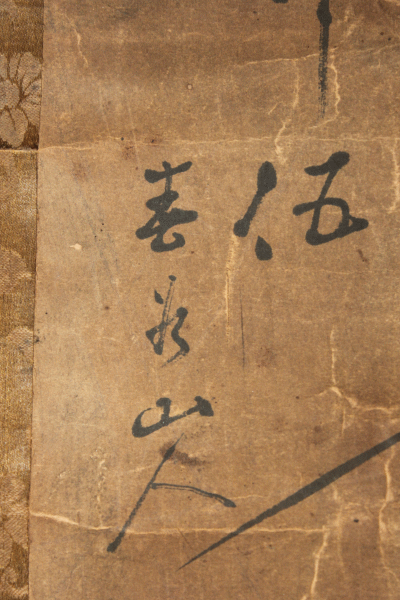 伍
春山人